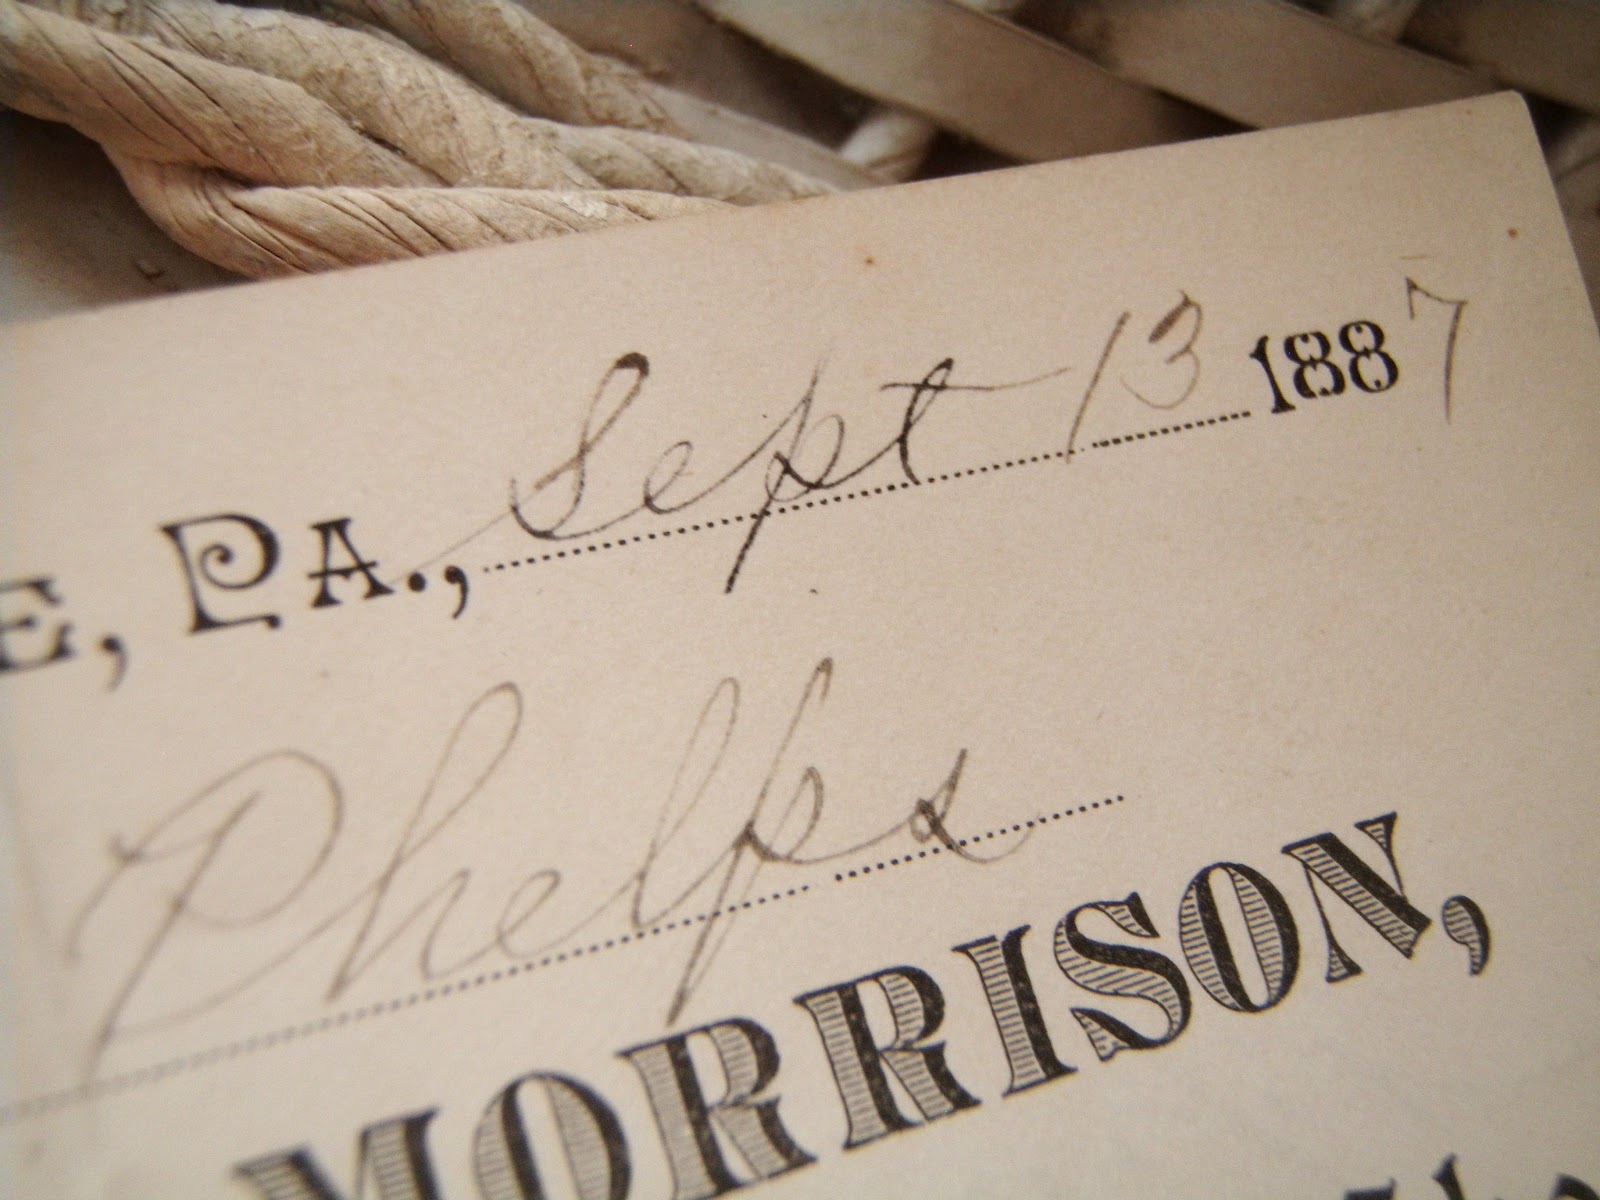 E, PA., Sept 13 1887
Phelps
MORRISON,